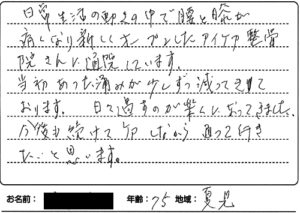 日常生活の動きの中で腰と膝が
痛くなり新しくオープンしたアイケア整骨
院さんに通院しています。
当初あった痛みが少しずつ減ってきて
おります。日々過すのが楽になってきました。
今後も続けて
たいと思います。
お名前： 年齢：75 地域：夏見